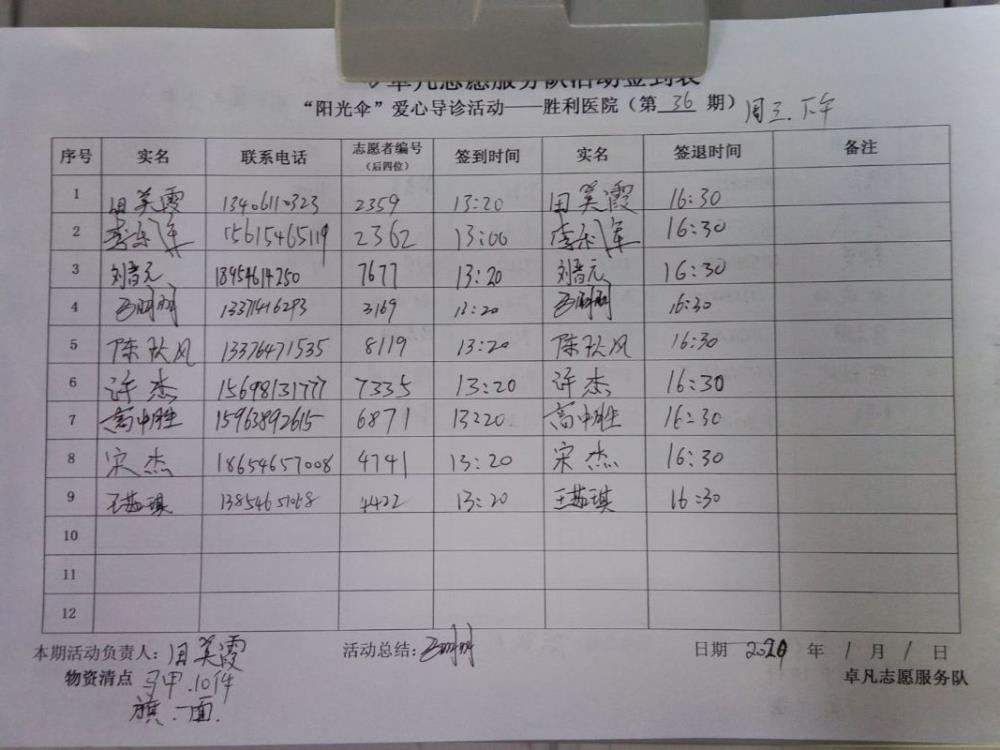 卓凡志愿服务队活动签到表
“阳光伞”爱心导诊活动——胜利医院（第 36 期） 周三.下午
序号 实名 联系电话 志愿者编号（后四位） 签到时间 实名 签退时间 备注
1 田美霞 13406110323 2359 13:20 田美霞 16:30
2 15615465119 2362 13:00 16:30
3 刘春元 18954614250 7677 13:20 刘春元 16:30
4 3169 13:20 16:30
5 陈秋风 13376471535 8119 13:20 陈秋风 16:30
6 许杰 15698131777 7335 13:20 许杰 16:30
7 高中胜 15963892615 6871 13:20 高中胜 16:30
8 宋杰 18654657008 4741 13:20 宋杰 16:30
9 王茹琪 4422 13:20 王茹琪 16:30
10
11
12
本期活动负责人：田美霞 活动总结： 日期 2020 年 1 月 1 日
物资清点 马甲.10件 卓凡志愿服务队
旗.一面.